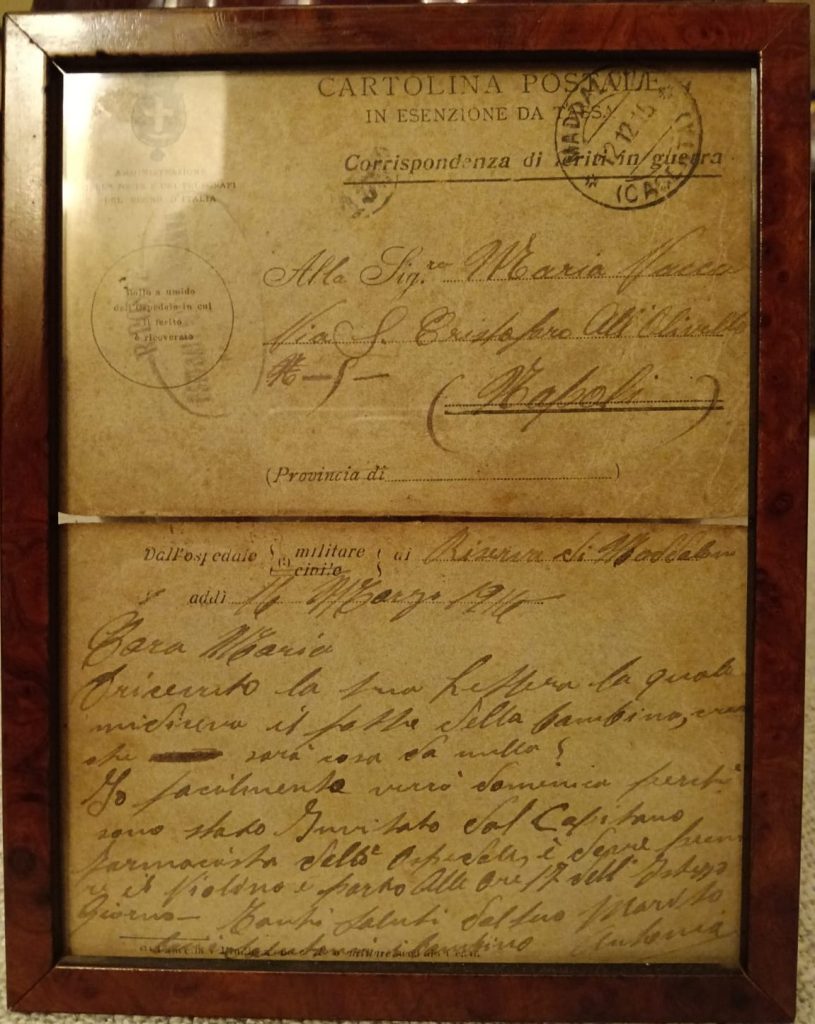 CARTOLINA POSTALE
IN ESENZIONE DA TASSA
Corrispondenza di feriti in guerra
AMMINISTRAZIONE
DELLE POSTE E DEI TELEGRAFI
DEL REGNO D'ITALIA
(CASERTA)
Bollo a umido
dell'Ospedale in cui
il ferito
è ricoverato
Alla Sig.ra Maria Vacca
Via S. Cristofaro All Olivello
N - 5 -
(Napoli)
(Provincia di )
Dall'ospedale (1) militare civile di Riserva di Maddaloni
addì 16 Marzo 1916
Cara Maria
O ricevuto la tua Lettera la quale
midiceva il fatto della bambina,
che sarà cosa da nulla
Io facilmente verrò domenica perchè
sono stado Invitato dal Capitano
farmacista dello Ospedale, e devo
il Violino e parto Alle Ore 17 dell' Istesso
Giorno - Tanti saluti dal tuo Marito
Antonio